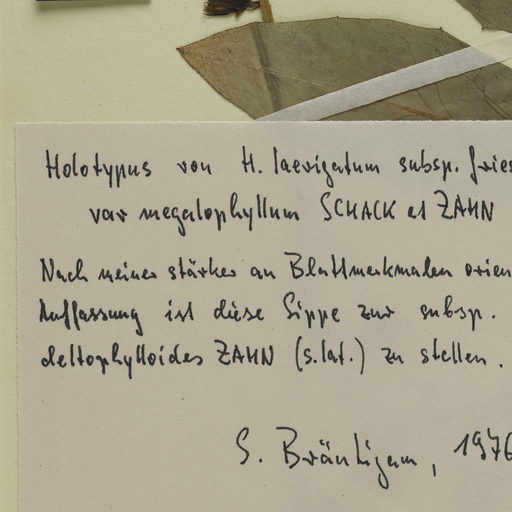 Holotypus von H. laevigatum subsp. fries
var megalophyllum SCHACK et ZAHN
Nach meiner stärker an Blattmerkmalen orien
Auffassung ist diese Sippe zur subsp.
deltophylloides ZAHN (s.lat.) zu stellen.
S. Bräutigam, 1976